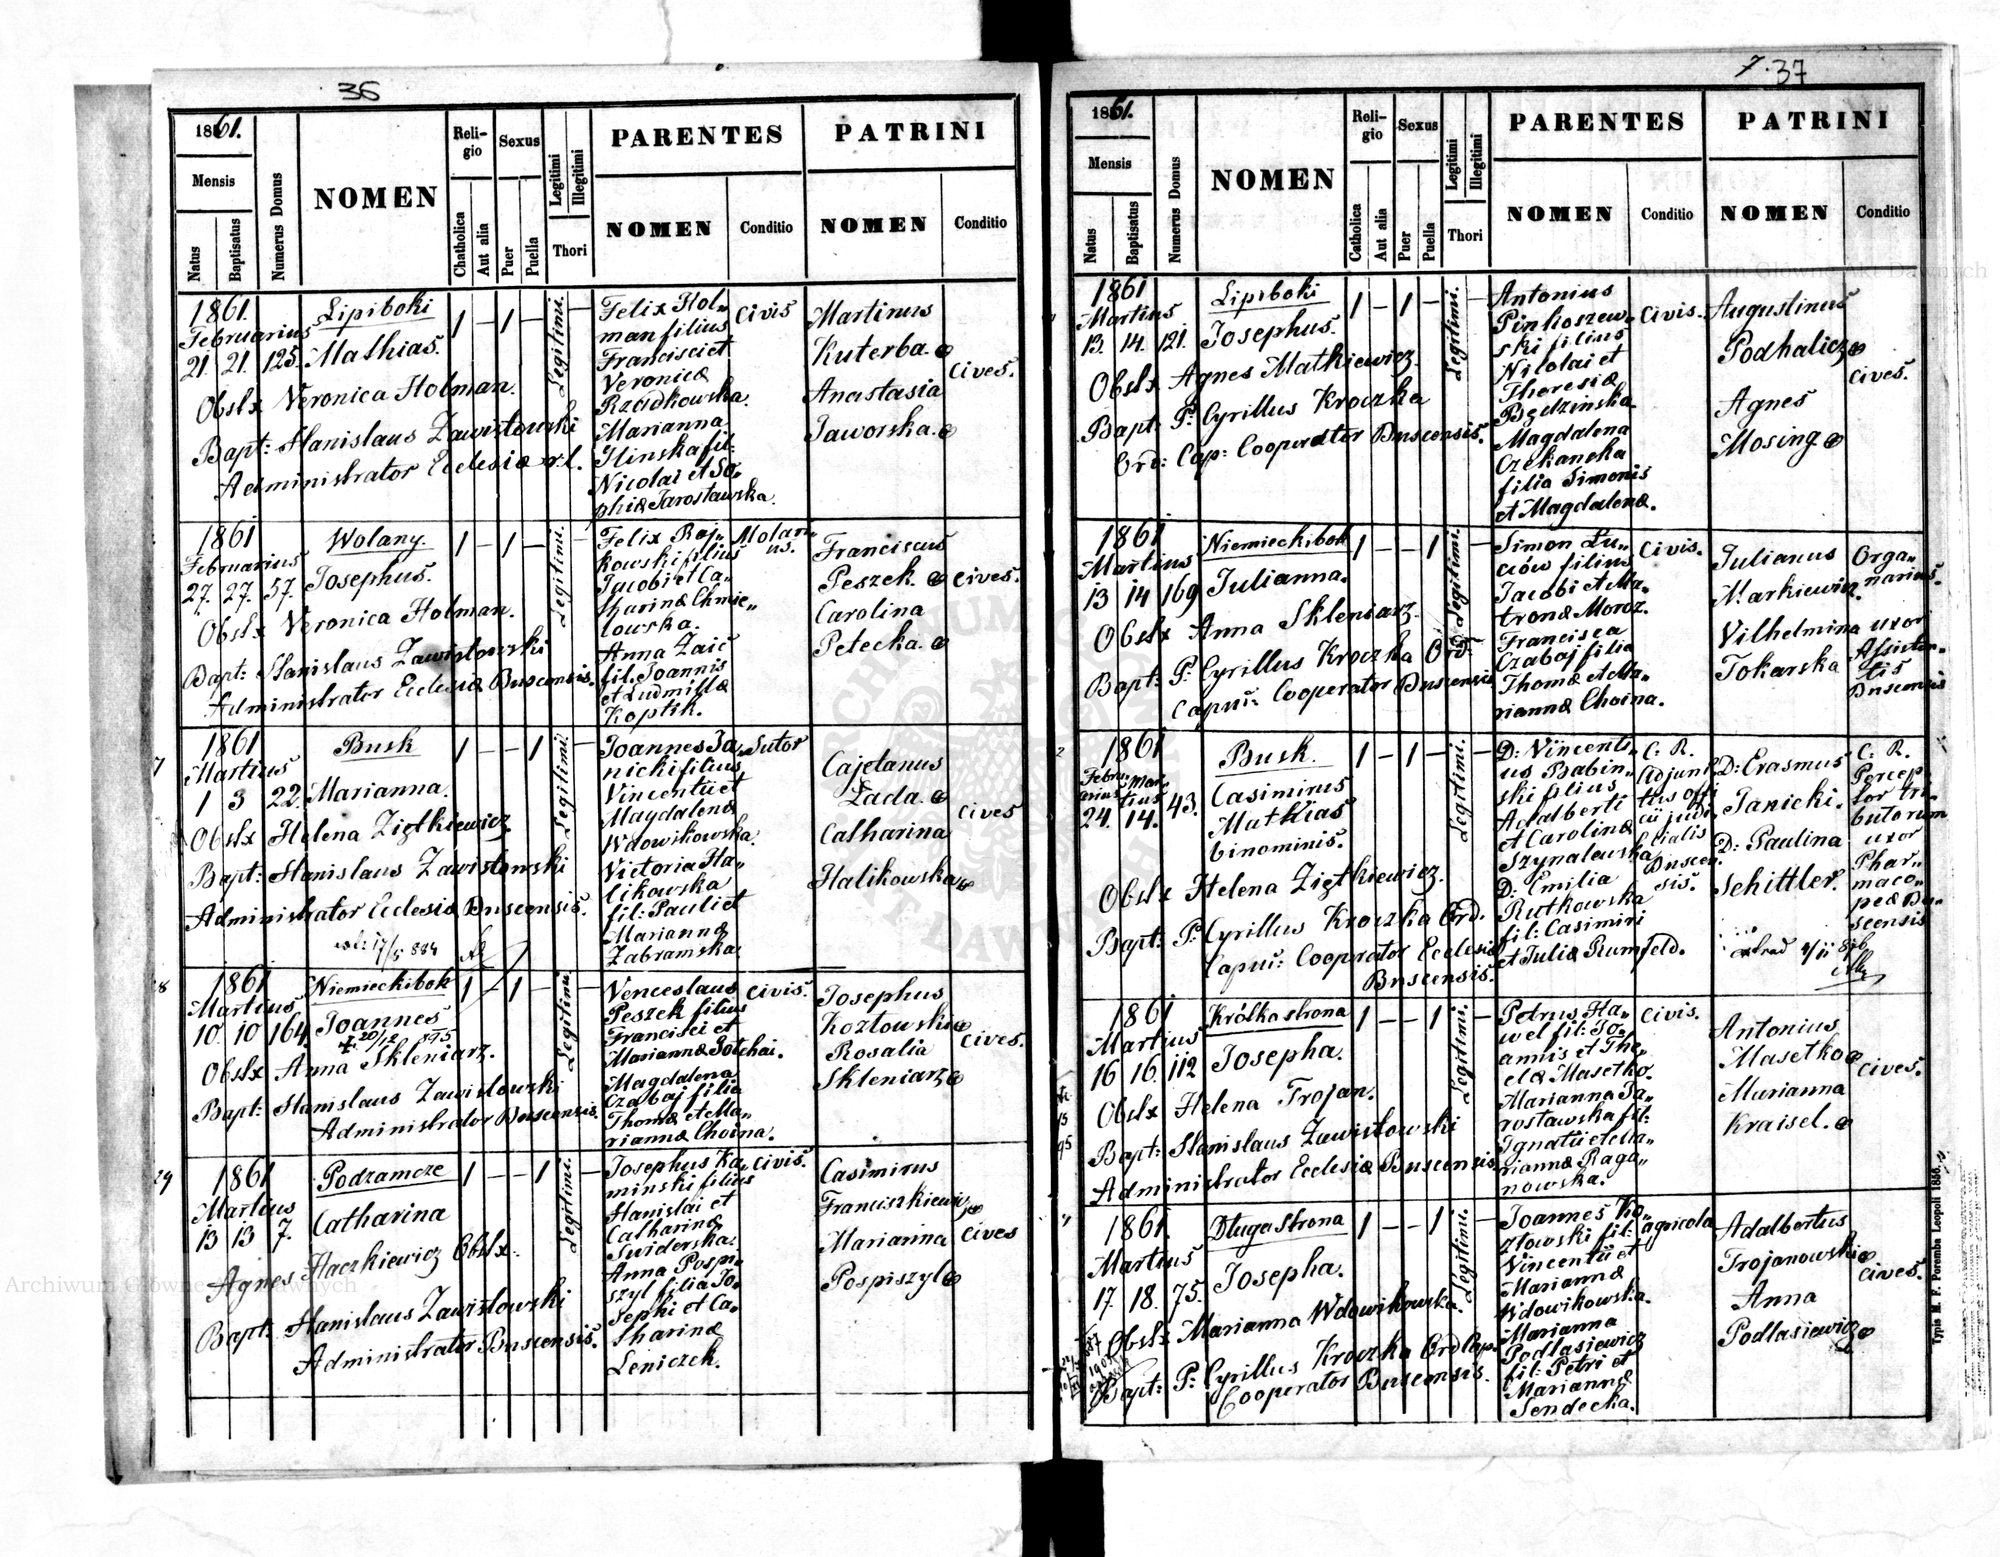 36
1861.
Mensis
Natus
Baptisatus
Numerus Domus
NOMEN
Religio
Chatholica
Aut alia
Sexus
Puer
Puella
Legitimi
Illegitimi
Thori
PARENTES
NOMEN
Conditio
PATRINI
NOMEN
Conditio
1861.
Februarius
21. 21. 125.
Lipiboki
Mathias.
Obstx Veronica Holman.
Bapt: Stanislaus Zawistowski
Administrator Ecclesiæ r.l.
1 – 1 –
Legitimi.
Felix Hol„
man filius
Francisci et
Veronicæ
Rzadkowska.
Marianna
Ilinska fil:
Nicolai et So„
phiæ Jarosławska.
Civis
Martinus
Kuterba.
Anastasia
Jaworska.
Cives.
1861
Februarius
27. 27. 57.
Wolany.
Josephus.
Obstx Veronica Holman.
Bapt: Stanislaus Zawistowski
Administrator Ecclesiæ Buscensis.
1 – 1 –
Legitimi.
Felix Raj„
kowski filius
Jacobi et Ca„
tharinæ Chmie„
lowska.
Anna Zaić
fil. Joannis
et Ludmillæ
Koptik.
Molan„
us.
Franciscus
Peszek.
Carolina
Petecka.
Cives.
1861
Martius
1 3 22.
Busk
Marianna.
Obstx Helena Ziętkiewicz.
Bapt: Stanislaus Zawistowski
Administrator Ecclesiæ Buscensis.
17/5 884
1 – – 1
Legitimi.
Joannes Ja„
nicki filius
Vincentii et
Magdalenæ
Wdowikowska.
Victoria Ha„
likowska
fil: Pauli et
Mariannæ
Zabramska.
Sutor
Cajetanus
Zada.
Catharina
Halikowska
Cives
28
1861
Martius
10. 10 164.
Niemieckibok
Joannes
Obstx Anna Skleniarz.
Bapt: Stanislaus Zawistowski
Administrator Buscensis.
1 – 1 –
Legitimi
Venceslaus
Peszek filius
Francisci et
Mariannæ Gotchai.
Magdalena
Czabaj filia
Thomæ et Ma„
riannæ Choina.
Civis.
Josephus
Kozłowski
Rosalia
Skleniarz
Cives.
29
1861
Martius
13 13 7.
Podzamcze
Catharina
Agnes Haczkiewicz Obstx.
Bapt: Stanislaus Zawistowski
Administrator Buscensis.
1 – – 1
Legitimi.
Josephus Ka„
minski filius
Stanislai et
Catharinæ
Swiderska.
Anna Pospi„
szyl filia Jo„
sephi et Ca„
tharinæ
Leniczek.
Civis.
Casimirus
Franciszkiewicz
Marianna
Pospiszyl
Cives
7. 37
1861.
Mensis
Natus
Baptisatus
Numerus Domus
NOMEN
Religio
Catholica
Aut alia
Sexus
Puer
Puella
Legitimi
Illegitimi
Thori
PARENTES
NOMEN
Conditio
PATRINI
NOMEN
Conditio
1861
Martius
13. 14. 121.
Lipiboki
Josephus.
Obstx Agnes Mathiewicz.
Bapt: P: Cyrillus Kroczka
Ord: Cap: Cooperator Buscensis.
1 – 1 –
Legitimi.
Antonius
Pinkoszew„
ski filius
Nicolai et
Theresiæ
Będzinska
Magdalena
Czekanska
filia Simonis
et Magdalenæ.
Civis.
Augustinus
Podhalicz
Agnes
Mosing
Cives.
1861
Martius
13 14 169
Niemieckibok
Julianna.
Obstx Anna Skleniarz.
Bapt: P: Cyrillus Kroczka Ord.
Capu: Cooperator Buscensis
1 – – 1
Legitimi.
Simon Lu„
ców filius
Jacobi et Ma„
tronæ Moroz.
Francisca
Czabaj filia
Thomæ et Ma„
riannæ Choina.
Civis.
Julianus
Markiewicz.
Vilhelmina
Tokarska
Orga„
narius.
uxor
Assisten„
tis
Buscensis
1861
Februarius Martius
24. 14. 43.
Busk.
Casimirus
Mathias
binominis.
Obstx Helena Ziętkiewicz.
Bapt: P: Cyrillus Kroczka Ord.
Capuc: Cooprator Ecclesiæ
Buscensis.
1 – 1 –
Legitimi.
D: Vincenti„
us Babin„
ski filius
Adalberti
et Carolinæ
Szynalewska
D: Emilia
Rutkowska
fil: Casimiri
et Juliæ Rumfeld.
C: R.
Adjunk„
tus offi
cii judi„
cialis
Buscen„
sis.
D: Erasmus
Janicki.
D: Paulina
Schittler.
C: R.
Percep„
tor tri„
butorum
uxor
Phar„
maco„
peæ Bu„
scensis
1861
Martius
16 16. 112
Krótka strona
Josepha.
Obstx Helena Trojan.
Bapt: Stanislaus Zawistowski
Administrator Ecclesiæ Buscensis
1 – – 1
Legitimi.
Petrus Ha„
wel fil: Jo„
annis et The„
clæ Masetko.
Marianna Ja„
rosławska fil:
Ignatii et Ma„
riannæ Raga„
nowska.
Civis.
Antonius
Masetko
Marianna
Kraisel.
Cives.
1861.
Martius
17. 18. 75.
Długa Strona
Josepha.
Obstx Marianna Wdowikowska.
Bapt: P: Cyrillus Kroczka Ord Cap.
Cooperator Buscensis.
1 – – 1
Legitimi.
Joannes Ko„
złowski fil:
Vincentii et
Mariannæ
Wdowikowska.
Marianna
Podlasiewicz
fil: Petri et
Mariannæ
Sendecka.
agricola
Adalbertus
Trojanowski
Anna
Podlasiewicz
Cives.
Typis M. F. Poremba Leopoli 1858.
Archiwum Główne Akt Dawnych